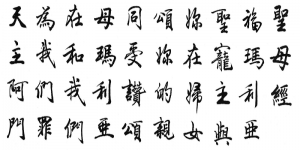 聖母經
福瑪利亞
聖寵主與
妳在婦女
頌妳的親
同受讚頌
母瑪利亞
在和我們
為我們罪
天主阿門